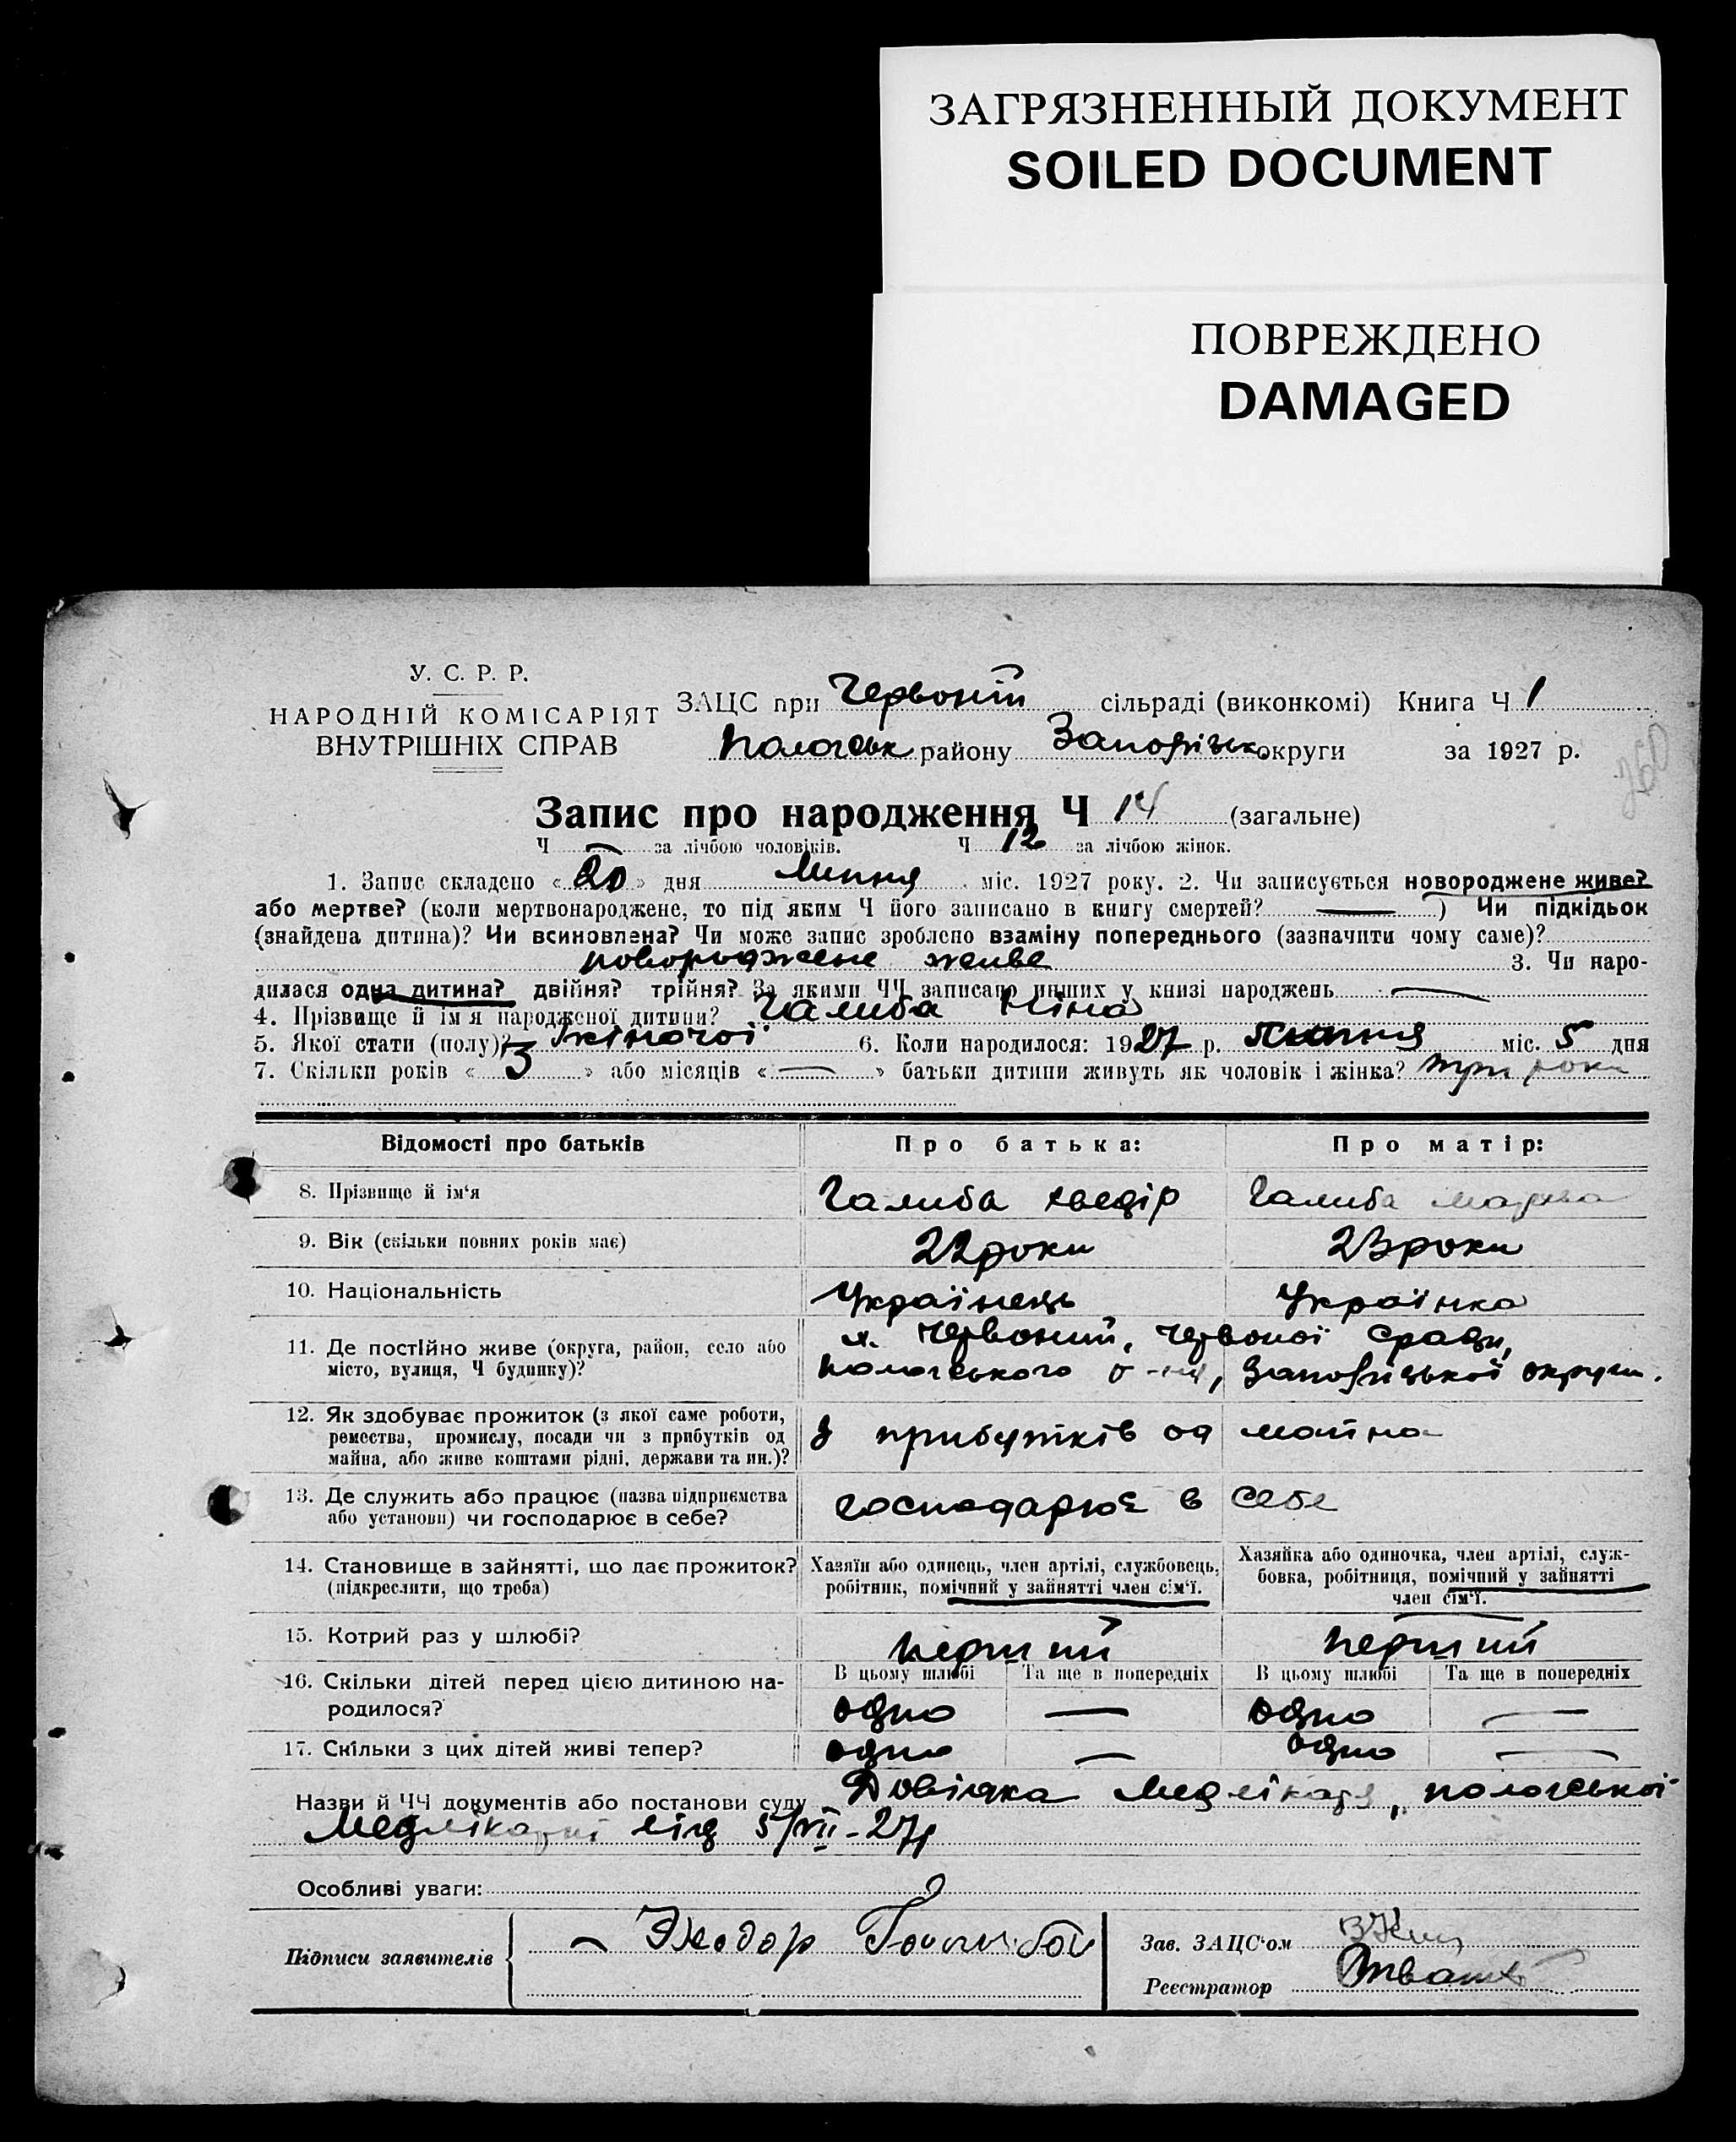 ЗАГРЯЗНЕННЫЙ ДОКУМЕНТ
SOILED DOCUMENT
ПОВРЕЖДЕНО
DAMAGED
У. С. Р. Р.
НАРОДНІЙ КОМІСАРІЯТ
ВНУТРІШНІХ СПРАВ
ЗАЦС при Червоній сільраді (виконкомі) Книга Ч 1
Пологськ району Запорізьк округи за 1927 р.
260
Запис про народження Ч 14 (загальне)
Ч — за лічбою чоловіків. Ч 12 за лічбою жінок.
1. Запис складено «20» дня Липня міс. 1927 року. 2. Чи записується новороджене живе?
або мертве? (коли мертвонароджене, то під яким Ч його записано в книгу смертей? — ) Чи підкідьок
(знайдена дитина)? Чи всиновлена? Чи може запис зроблено взаміну попереднього (зазначити чому саме)?
новороджене живе 3. Чи наро-
дилася одна дитина? двійня? трійня? За якими ЧЧ записано инших у книзі народжень —
4. Прізвище й ім'я народженої дитини? Галиба Ніна
5. Якої стати (полу)? жіночої 6. Коли народилося: 1927 р. Липня міс. 5 дня
7. Скільки років «3» або місяців «—» батьки дитини живуть як чоловік і жінка? три роки
Відомості про батьків Про батька: Про матір:
8. Прізвище й ім'я Галиба Хведір Галиба
9. Вік (скільки повних років має) 22 роки 23 роки
10. Національність Українець Українка
11. Де постійно живе (округа, район, село або х. Червоний, Червоної сради,
місто, вулиця, Ч будинку)? Пологського р-ну, Запорізької округи.
12. Як здобуває прожиток (з якої саме роботи,
ремества, промислу, посади чи з прибутків од З прибутків од майна
майна, або живе коштами рідні, держави та ин.)?
13. Де служить або працює (назва підприємства господарює в себе
або установи) чи господарює в себе?
14. Становище в зайнятті, що дає прожиток? Хазяїн або одинець, член артілі, службовець, Хазяйка або одиночка, член артілі, служ-
(підкреслити, що треба) робітник, помічний у зайнятті член сім'ї. бовка, робітниця, помічний у зайнятті
член сім'ї.
15. Котрий раз у шлюбі? перший перший
16. Скільки дітей перед цією дитиною на- В цьому шлюбі Та ще в попередніх В цьому шлюбі Та ще в попередніх
родилося? одно — одно —
17. Скільки з цих дітей живі тепер? одно — одно —
Назви й ЧЧ документів або постанови суду Довідка Медлікаря, пологської
Медлікарні від 5/VII-27р
Особливі уваги:
Підписи заявителів Галиба Зав. ЗАЦС'ом
Реєстратор